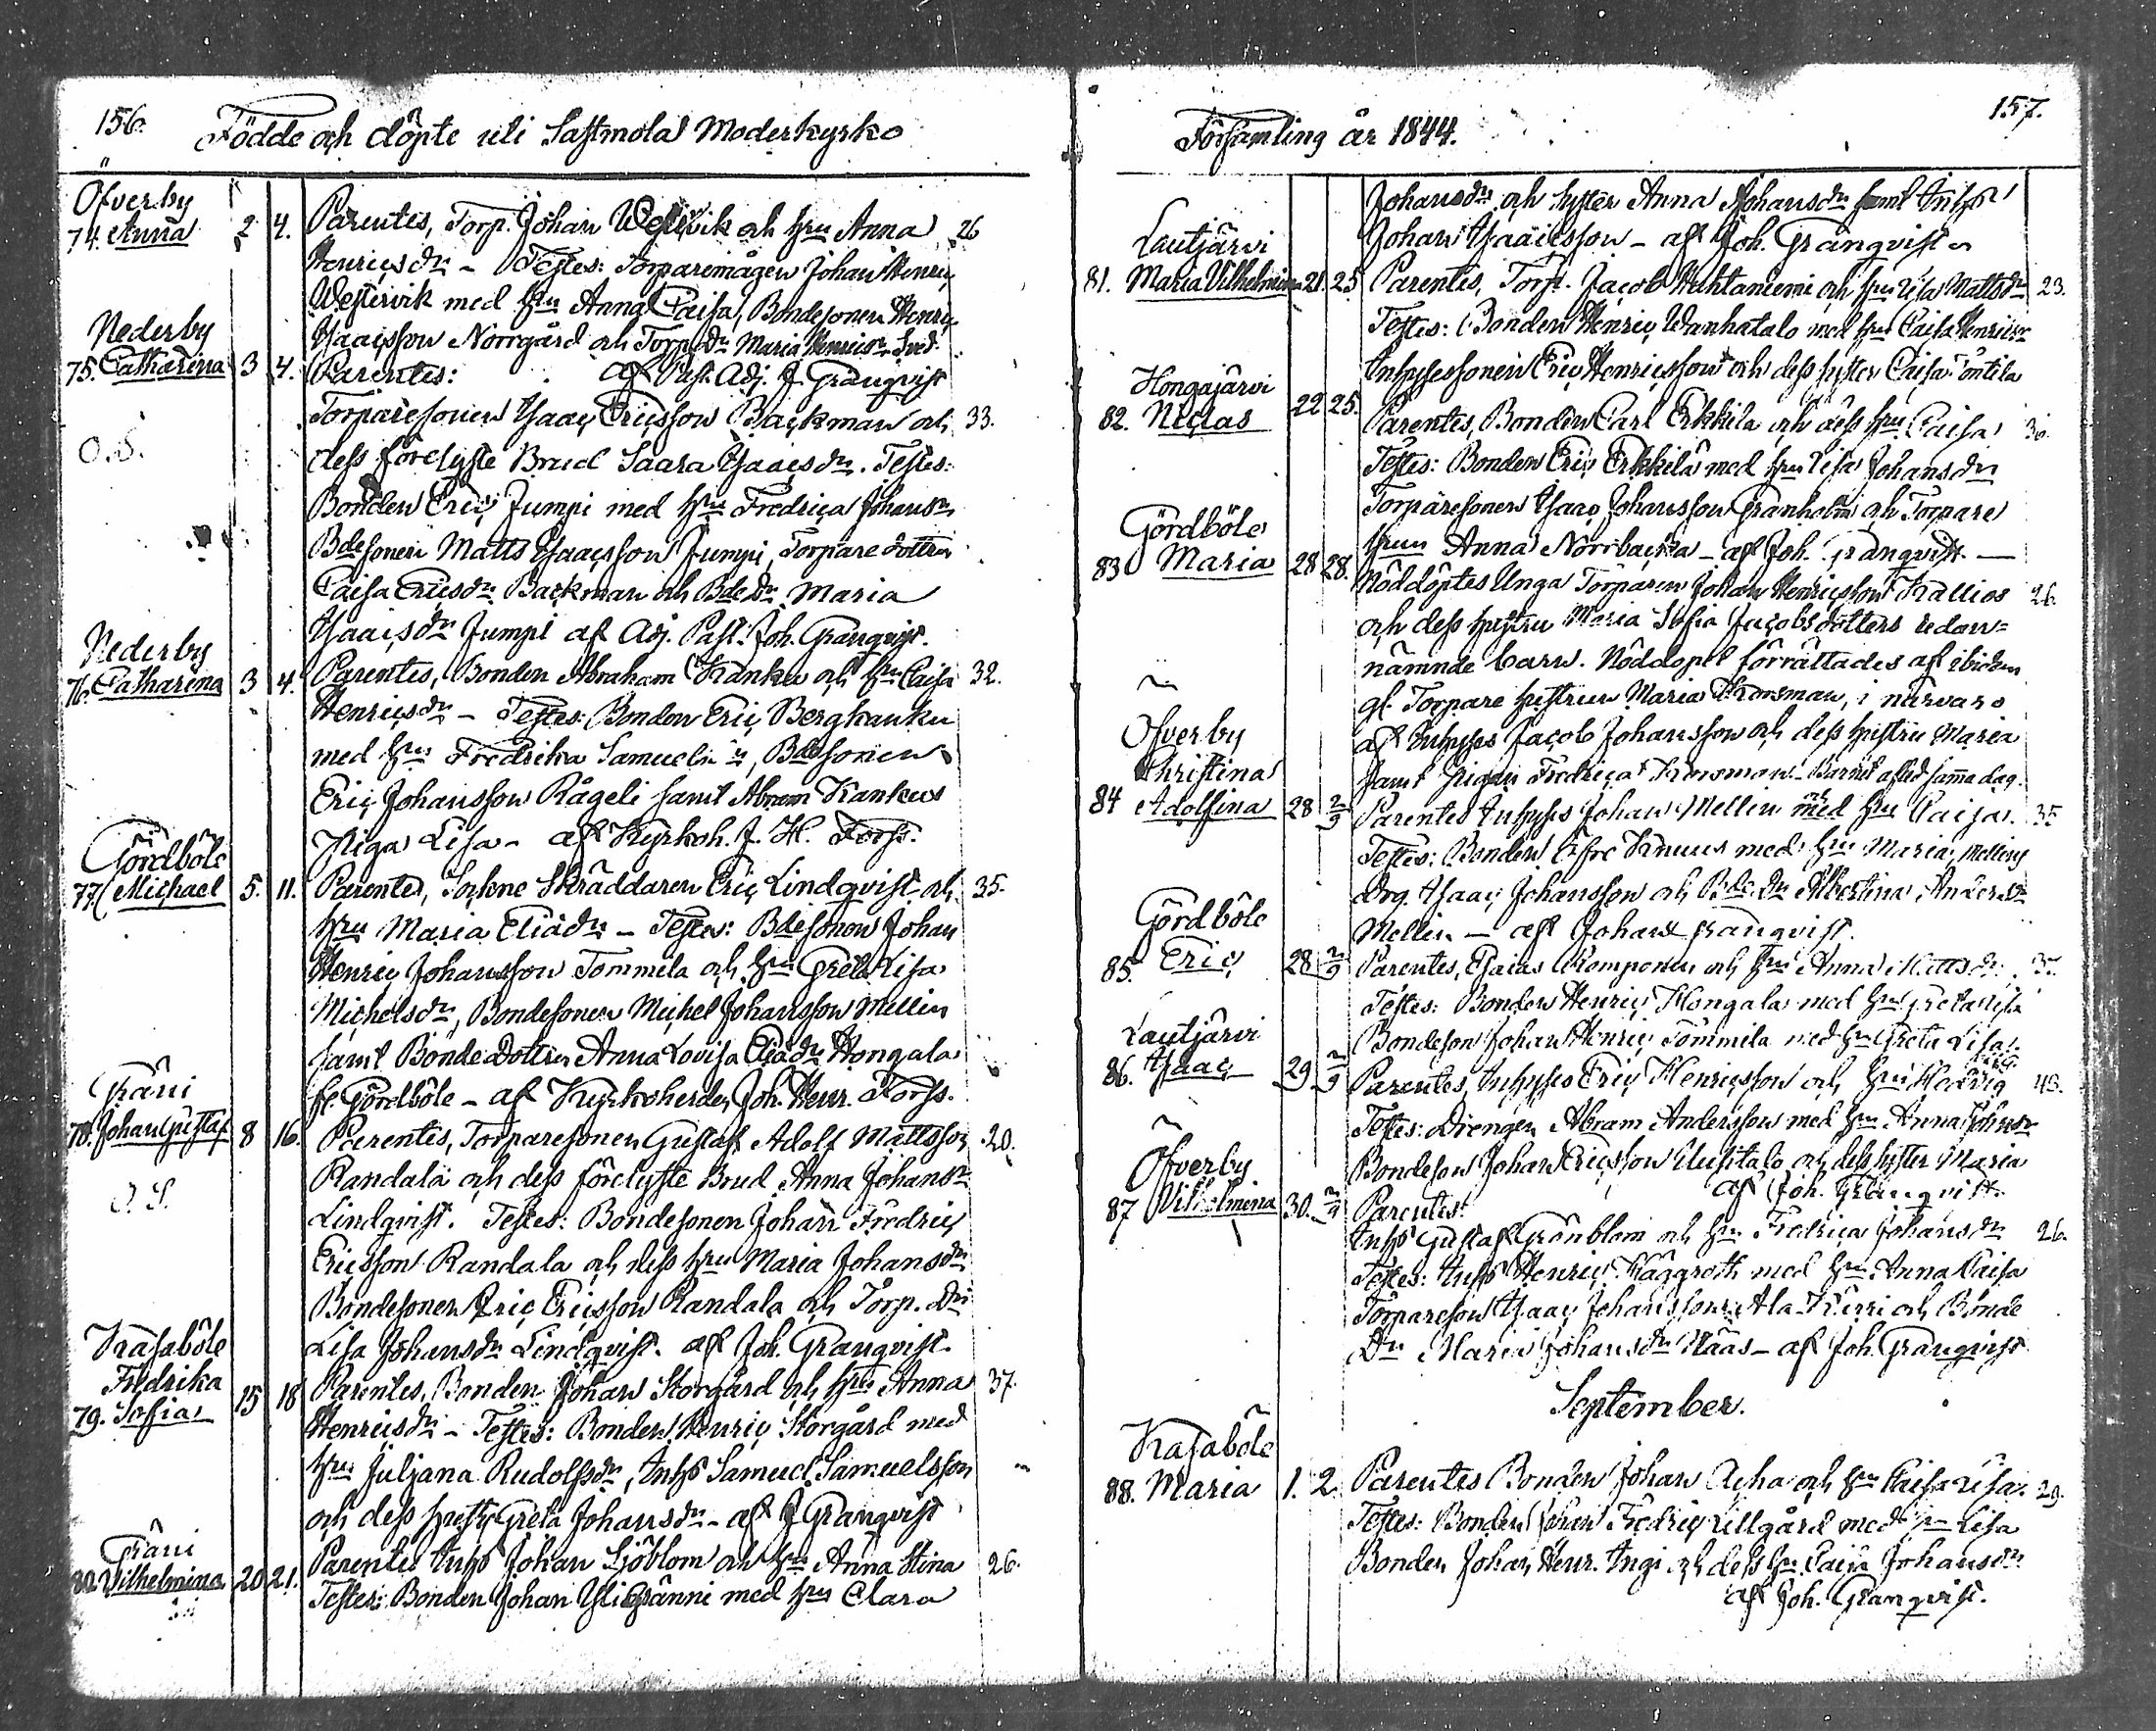 156.
Födde och döpte uti Sastmola Moderkyrko
Öfverby
74. Anna 2 4. Parentes, Torp. Johan Westervik och Hru Anna 26
Henricsdr - Testes: Torparemågen Johan Henric
Westervik med hru Anna Caisa, Bondesonen Henric
Isaacsson Norrgård och Torp.dr Maria Henricsdr Sved.
Nederby
75. Catharina 3 4. Parentes: af Past. Adj. J. Granqvist
Torparesonen Isaac Ericsson Backman och 33.
O.S.
dess förelyste Brud Saara Isaacsdr. Testes:
Bonden Eric Jumpi med hru Fredrica Johansdr
Bdesonen Matts Isaacsson Jumpi, Torpare dottren
Caisa Ericsdr Backman och Bdedr Maria
Isaacsdr Jumpi af Adj. Past. Joh. Granqvist.
Nederby
76. Catharina 3 4. Parentes, Bonden Abraham Kanku och hru Caisa 32.
Henricsdr - Testes: Bonden Eric Bergkanku
med hru Fredrika Samuelsdr, Bdesonen
Eric Johansson Rågeli samt Abram Kankus
Piga Lisa - af Kyrkoh. J. H. Forss.
Gördböle
77. Michael 5. 11. Parentes, Sockne Skräddaren Eric Lindqvist och 35.
hru Maria Eliædr - Testes: Bdesonen Johan
Henric Johansson Tommila och hru Greta Lisa
Michelsdr, Bondesonen Michel Johansson Mellin
samt Bonde Dottren Anna Lovisa Eliædr Hongala
fr. Gördböle - af Kyrkoherden Joh. Henr. Forss.
Träni
78. Johan Gustaf 8 16. Parentes, Torparesonen Gustaf Adolf Mattsson 20.
O.S.
Randala och dess förelyste Brud Anna Johansdr
Lindqvist. Testes: Bondesonen Johan Fredric
Ericsson Randala och dess hru Maria Johansdr
Bondesonen Eric Ericsson Randala och Torp. dr
Lisa Johansdr Lindqvist. af Joh. Granqvist.
Kasaböle
Fredrika
79. Sofia 15 18 Parentes, Bonden Johan Storgård och hru Anna 37.
Henricsdr - Testes: Bonden Henric Storgård med
hru Juljana Rudolfsdr, Inhs Samuel Samuelsson
och dess hustr. Greta Johansdr - af J Granqvist
Träni
80. Vilhelmina 20 21. Parentes Inhs Johan Sjöblom och hru Anna Stina 26.
Testes: Bonden Johan Yli Tränni med hru Clara
157.
Församling år 1844.
Johansdr och syster Anna Johansdr samt Inhs
Johan Isaacsson - af Joh. Granqvist
Lautjärvi
81. Maria Vilhelmina 21. 25 Parentes, Torp. Jacob Huhtaniemi och hru Lisa Mattsdr 23.
Testes: Bonden Henric Wanhatalo med hru Caisa Henricsdr
Inhysessonen Eric Henricsson och dess syster Caisa Töntila
Hongajärvi
82. Niclas 22 25. Parentes, Bonden Carl Erkkila och dess hru Caisa 30.
Testes: Bonden Eric Erkkilä med hru Lisa Johansdr
Torparesonen Isaac Johansson Granholm och Torpare
hrun Anna Norrbacka - af Joh. Granqvist -
Gördböle
83 Maria 28 28. Nöddöptes Unga Torparen Johan Henricsson Kallios 26.
och dess hustru Maria Sofia Jacobsdotters redan=
nämnde barn. Nöddopet förrättades af ibidem
gl. Torpare hustrun Maria Kronsman, i närvaro
af Inhyses Jacob Johansson och dess hustru Maria
samt Pigan Fredrica Kronsman - Barnet afled samma dag.
Öfverby
Christina
84 Adolfina 28 2/9 Parentes Inhyses Johan Mellin med hru Caisa. 35
Testes: Bonden Knuus med hru Maria, Mellins
drg. Isaac Johansson och Bde Dr Albertina Andersdr
Mellin - af Johan Granqvist.
Gördböle
85. Eric 28 2/9 Parentes, Esaias Romponen och hru Anna Mattsdr. 35.
Testes: Bonden Henric Hongala med hru Greta Lisa
Bondeson Johan Henric Tommila med hru Greta Lisa.
Lautjärvi
86. Isaac 29 2/9 Parentes, Inhyses Eric Henricsson och hru Hedvig 43.
Testes: Drengen Abram Andersson med hru Anna Johansdr
Bondeson Johan Ericsson Uusitalo och dess syster Maria
af Joh. Granqvist.
Öfverby
87 Vilhelmina 30. 2/9 Parentes:
Inhs Gustaf Grönblom och hru Fredrica Johansdr 26.
Testes: Inhs Henric Häggroth med hru Anna Caisa
Torpareson Isaac Johansson Ala-Kärri och Bonde
Dr Maria Johansdr Nääs - af Joh. Granqvist
September.
Kasaböle
88. Maria 1. 2. Parentes Bonden Johan Acha och hru Caisa Lisa. 29.
Testes: Bonden Johan Fredric Lillgård med hru Lisa
Bonden Johan Henr. Ingi och dess hru Caisa Johansdr
af Joh. Granqvist.